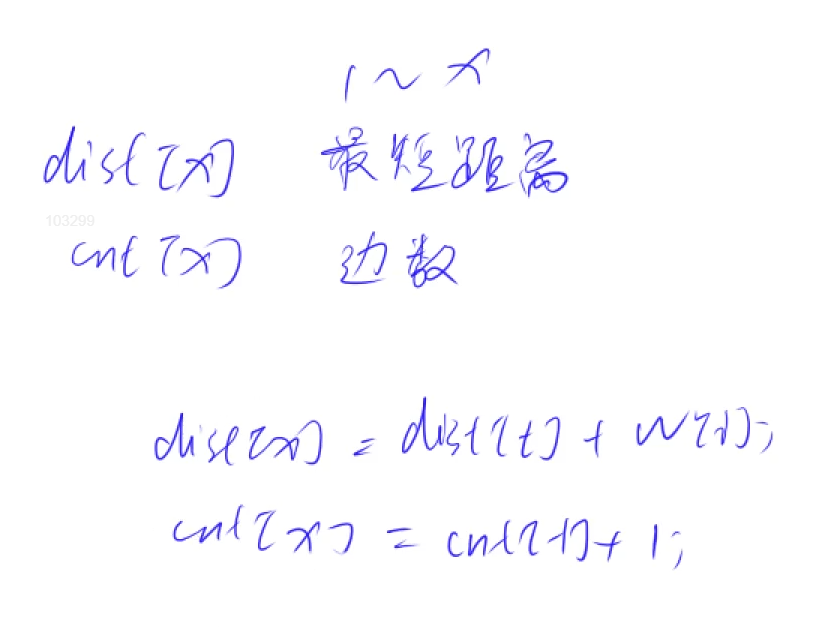 1 ~ x
dist[x] 最短距离
103299
cnt[x] 边数
dist[x] = dist[t] + w[i];
cnt[x] = cnt[t] + 1;